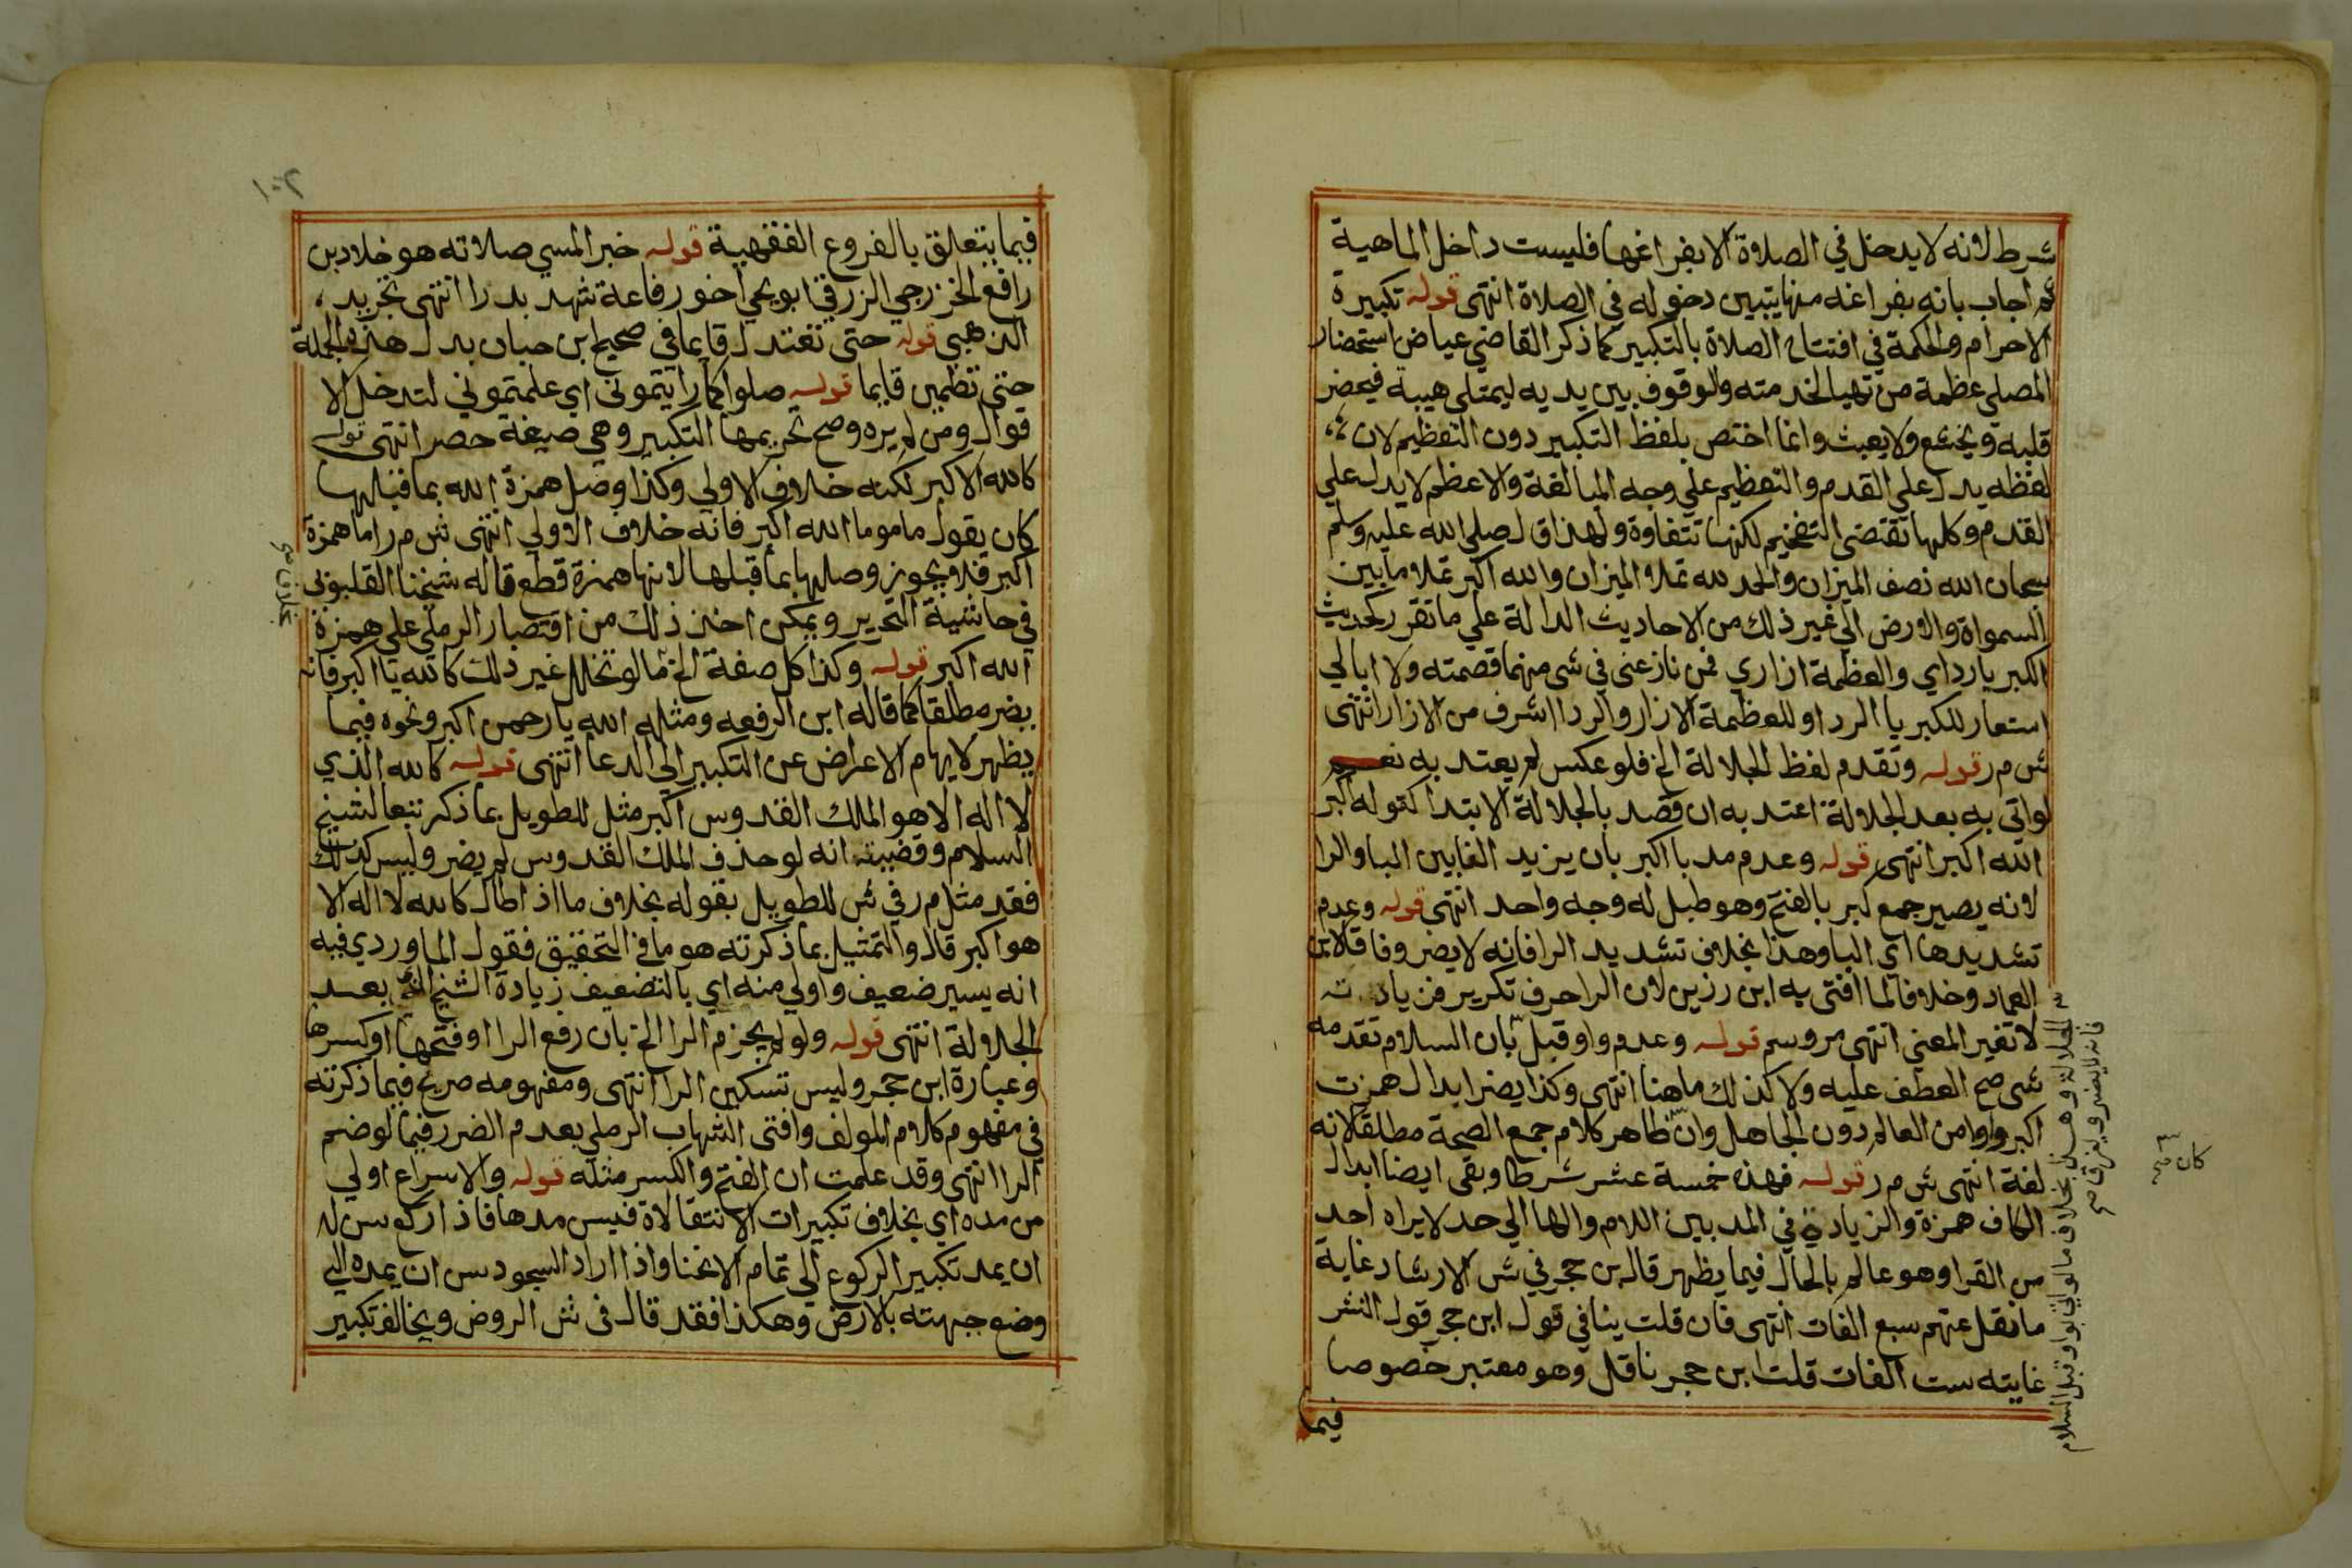 شرط لانه لا يدخل في الصلاة الا بفراغها فليست داخل الماهية
ثم اجاب بانه بفراغه منها يتبين دخوله في الصلاة انتهى قوله تكبيرة
الاحرام والحكمة في افتتاح الصلاة بالتكبير كما ذكر القاضي عياض استحضار
المصلي عظمة من تهيا لخدمته والوقوف بين يديه ليمتلي هيبة فيحضر
قلبه ويخشع ولا يعبث وانما اختص بلفظ التكبير دون التعظيم لان
لفظه يدل على القدم والتعظيم علي وجه المبالغة والاعظم لا يدل علي
القدم وكلها تقتضى التفخيم لكنها تتفاوة ولهذا قال صلي الله عليه وسلم
سبحان الله نصف الميزان والحمد لله تملا الميزان والله اكبر تملا ما بين
السمواة والارض الي غير ذلك من الاحاديث الدالة علي ما تقرر كحديث
الكبريا رداي والعظمة ازاري فمن نازعني في شى منهما قصمته ولا ابالي
استعار للكبريا الردا وللعظمة الازار والردا اشرف من الازار انتهى
ش م ر قوله وتقدم لفظ الجلالة الخ فلو عكس لم يعتد به نعم
لو اتي به بعد الجلالة اعتد به ان قصد بالجلالة الابتدا كقوله اكبر
الله اكبر انتهى قوله وعدم مد با اكبر بان يزيد الفا بين البا والرا
لانه يصير جمع كبر بالفتح وهو طبل له وجه واحد انتهى قوله وعدم
تشديدها اي البا وهذا بخلاف تشديد الرا فانه لا يضر وفاقا لابن
العماد وخلافا لما افتى به ابن رزين لان الرا حرف تكرير فزيادته
لا تغير المعني انتهى م ر وسم قوله وعدم واو قبل بان السلام تقدمه
شى صح العطف عليه ولا كذلك ما هنا انتهى وكذا يضر ابدال همزت
اكبر واوا من العالم دون الجاهل وان ظاهر كلام جمع الصحة مطلقا لانه
لغة انتهى ش م ر قوله فهذه خمسة عشر شرطا وبقى ايضا ابدال
الكاف همزة والزيادة في المد بين اللام والها الي حد لا يراه احد
من القرا وهو عالم بالحال فيما يظهر قاله بن حجر في ش الارشاد غاية
ما نقل عنهم سبع الفات انتهى فان قلت ينافي قول ابن حجر قول النشر
غايته ست الفات قلت ابن حجر ناقل وهو معتبر خصوصا
فيما
الجلالة وهذا بخلاف ما لو اتى بواو قبل السلام
فانه لا يضر ويفرق صح
كان صح
١٠٢
فيما يتعلق بالفروع الفقهية قوله خبر المسي صلاته هو خلاد بن
رافع الخزرجي الزرقي ابو يحيي اخو رفاعة شهد بدرا انتهى تجريد
الذهبي قوله حتى تعتدل قايما في صحيح ابن حبان بدل هذه الجملة
حتى تطمين قايما قوله صلوا كما رايتموني اي علمتموني لتدخل الا
قوال ومن لم يره وصح تحريمها التكبير وهي صيغة حصر انتهى قوله
كالله الاكبر لكنه خلاف الاولي وكذا وصل همزة الله بما قبلها
كان يقول ماموما الله اكبر فانه خلاف الاولي انتهى ش م ر اما همزة
اكبر فلا يجوز وصلها بما قبلها لانها همزة قطع قاله شيخنا القليوبى
في حاشية التحرير ويمكن اخذ ذلك من اقتصار الرملي علي همزة
الله اكبر قوله وكذا كل صفة الخ ما لو تخلل غير ذلك كالله يا اكبر فانه
يضر مطلقا كما قاله ابن الرفعه ومثله الله يا رحمن اكبر ونحوه فيما
يظهر لايهام الاعراض عن التكبير الي الدعا انتهى قوله كالله الذي
لا اله الا هو الملك القدوس اكبر مثل للطويل بما ذكر تبعا لشيخ
السلام وقضيته انه لو حذف الملك القدوس لم يضر وليس كذلك
فقد مثل م ر في ش للطويل بقوله بخلاف ما اذا طال كالله لا اله الا
هو اكبر قال والتمثيل بما ذكرته هو ما في التحقيق فقول الماوردي فيه
انه يسير ضعيف واولي منه اي بالتضعيف زيادة الشيخ بعد
الجلالة انتهى قوله ولو لم يجزم الرا الخ بان رفع الرا او فتحها او كسرها
وعبارة ابن حجر وليس تسكين الرا انتهى ومفهومه صريح فيما ذكرته
في مفهوم كلام المولف وافتى الشهاب الرملي بعدم الضرر فيما لو ضم
الرا انتهى وقد علمت ان الفتح والكسر مثله قوله والاسراع اولي
من مده اي بخلاف تكبيرات الانتقالاة فيسن مدها فاذا ركع سن له
ان يمد تكبير الركوع الي تمام الانحنا واذا اراد السجود سن ان يمده الي
وضع جبهته بالارض وهكذا فقد قال في ش الروض ويخالف تكبير